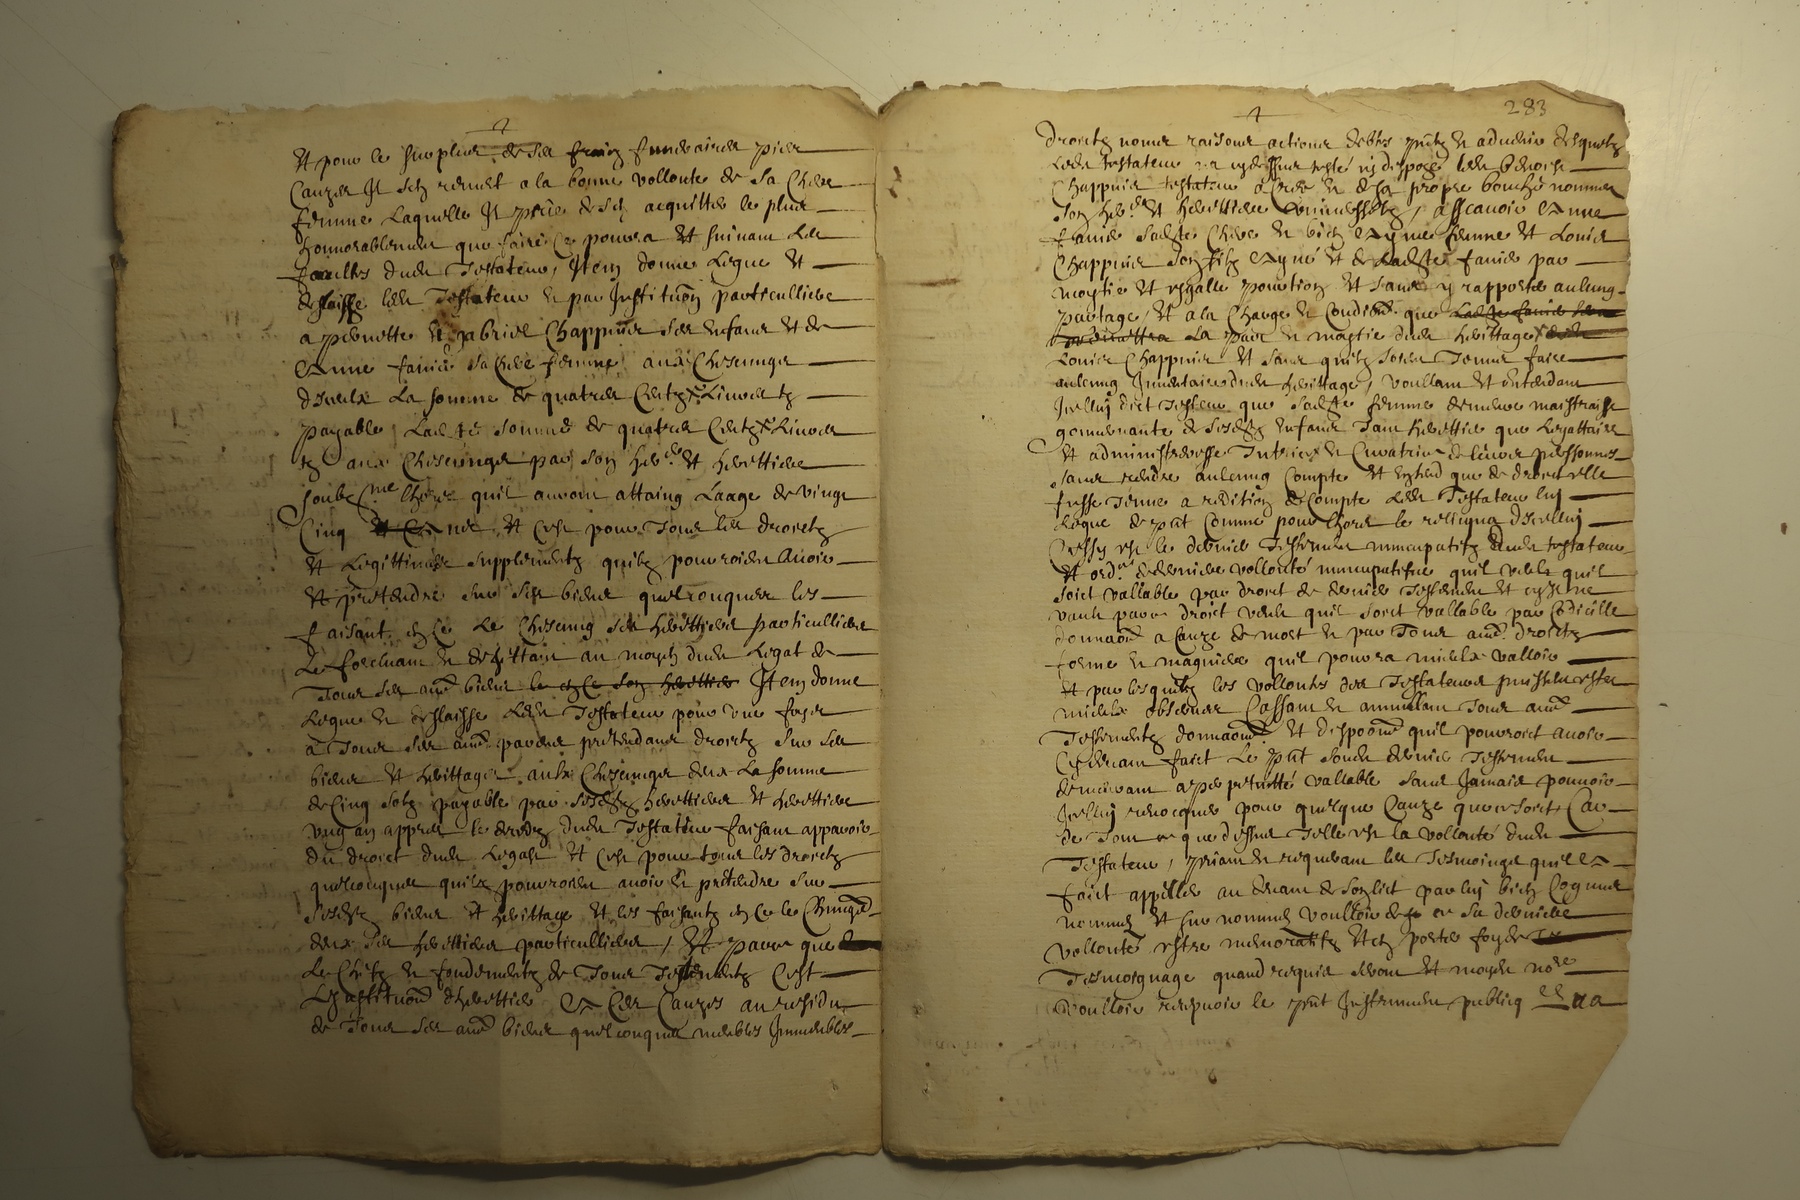 Et pour le surplus de ses fraiz funeraires pies
Cauzes Il sen remet a la bonne vollonte de sa Chere
femme Laquelle Il prie de sen acquitter le plus
honnorablement que faire ce pourra Et suivant Les
facultes dudt Testateur, Item donne Legue Et
deslaisse ledt Testateur et par Institution particulliere
a pernette Et gabriel Chappuis ses enfans Et de
Anne favie sa chere femme aux Chescungs
d'iceulx La somme de quatres Centz Livres tz
payable Ladte somme de quatres Centz Livres
tz aux Chescungs par son herr Et herettiere
soubz nme lhors quil auront attaing Laage de vingt
Cinq ans, Et Cest pour Tous les droictz
Et Legittimes supplementz quilz pourroient Avoir
Et pretendre sur ses biens quelconques les
faisant en Ce Le Chescung ses herettiers particulliers
Le forcluant Et au moyen dudt Legat de
Tous ses aues biens le en Ce son herettier Item donne
Legue Et deslaisse Ledt Testateur pour une foys
a Tous ses aues parens pretendans droictz sur ses
biens Et herittages aulx Chescungs deux La somme
de Cinq solz payable par sesdtz herettiers Et herettiere
ung an appres le deces dudt Testateur faisant apparoir
du droict dudt Legat Et Cest pour tous les droictz
quelconques quilz pourroient avoir Et pretendre sur
sesdtz biens Et herittage Et les faisantz en Ce le
deux ses herettiers particulliers, Et parce que
Le Chefz Et fondementz de Tous Testamentz Cest
Linstitution dherettier A Ces Cauzes au residu
de Tous ses aues biens quelconques meubles Immeubles
283
droictz noms raisons actions debtes pntz Et advenir desquelz
Ledt testateur na cy dessus testé ny dispozé ledt benoist
Chappuis testateur a Cree Et de sa propre bouche nommes
son herr Et herettiere universselz, assavoir Anne
favie sadte Chere Et bien Aymee femme Et Louis
Chappuis son filz Aymé Et de Ladte favie par
moytie Et esgalle portion Et sans y rapporter aulcung
partage, Et a la Charge Et Condion que Ladte favie
La paix Et moytie dudt herittage
Louis Chappuis Et sans quilz soient Tenus faire
aulcung Inventaire dudt herittage, voullant Et entendant
Icelluy dict Testeur que sadte femme demeure maistraisse
gouvernante de sesdtz Enfans Tant herettier que Legattaires
Et administraresse Tutrice Et Curatrice de leurs perssonnes
sans rendre aulcung Compte Et
fusse Tenue a redition de Compte Ledt Testateur luy
Legue de pnt Comme pour lhors le relicqua d'icelluy
Cessy est le dernier Testament nuncupatifz dudt testateur
Et ordre de derniere vollonté nuncupatifve quil veult quil
soict vallable par droict de dernier Testament Et
vault par droict veult quil soict vallable par Codicille
donnaon a Cauze de mort Et par Tous aues droictz
forme Et magniere quil pourra mieulx valloir
Et par lesquelz les vollontes des Testateurs puissent estre
mieulx observes Cassant Et annullant Tous aues
Testamentz donnaons Et dispoons quil pourroict avoir
Cydevant faict Le pnt soudt dernier Testament
demeurant a perpetuitté vallable sans Jamais pouvoir
Icelluy revocques pour quelque Cauze que ce soict Car
de Tout ce que dessus Telle est la vollonté dudt
Testateur, priant Et requerant les Tesmoings quil A
faict appelles au devant de son lict par luy bien Cognus
nommes Et sur nommes voulloir de ce sa derniere
vollonté estre memoratifz Et en porter foy de
Tesmoignage quand requis seront Et moyen nore
voulloir recepvoir le pnt Instrument publicq